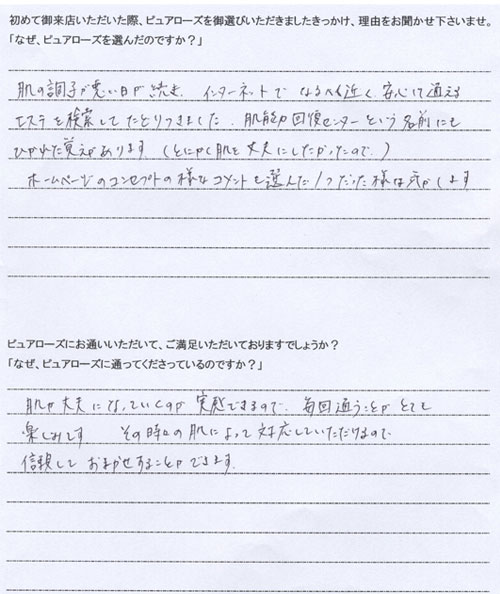 初めて御来店いただいた際、ピュアローズを御選びいただきましたきっかけ、理由をお聞かせ下さいませ。
「なぜ、ピュアローズを選んだのですか？」
肌の調子が悪い日が続き、インターネットで なるべく近く、安心して通える
エステを検索してたどりつきました。肌能力回復センターという名前にも
ひかれた覚えがあります（とにかく肌を丈夫にしたかったので。）
ホームページのコンセプトの様なコメントも選んだ1つだった様な気がします
ピュアローズにお通いいただいて、ご満足いただいておりますでしょうか？
「なぜ、ピュアローズに通ってくださっているのですか？」
肌が丈夫になっていくのが実感できるので、毎回通うことがとても
楽しみです。 その時々の肌によって対応していただけるので
信頼して おまかせすることができます。